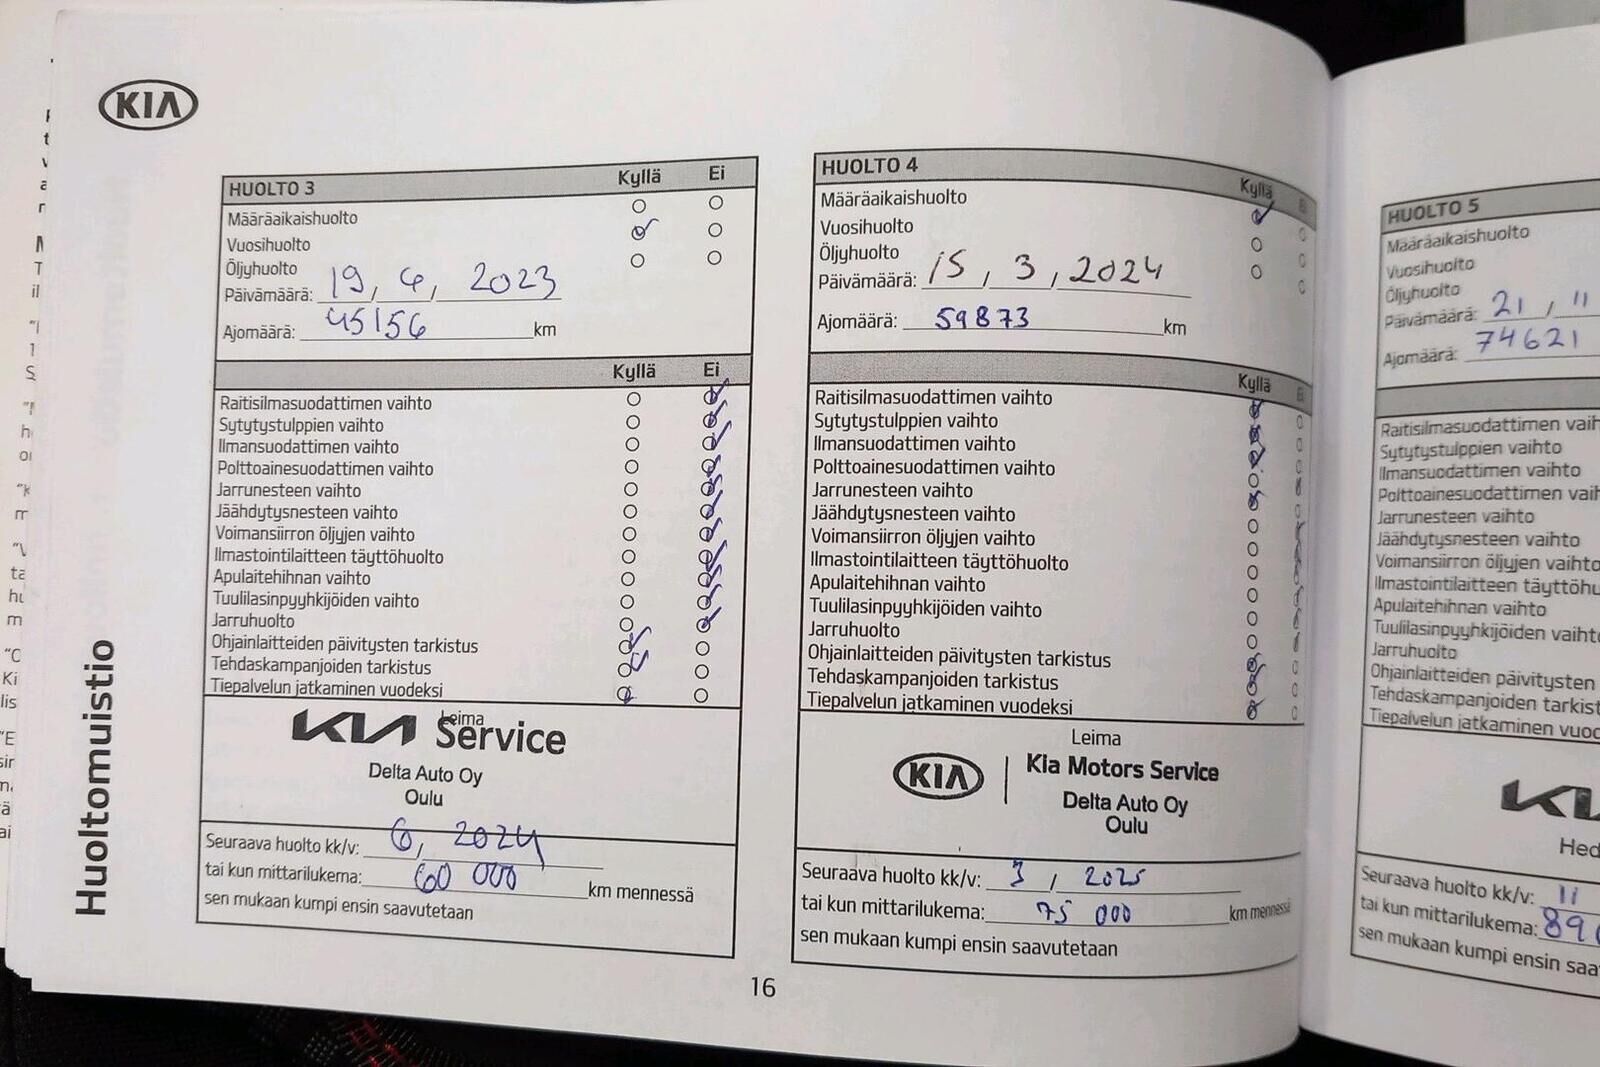 KIA
Huoltomuistio
HUOLTO 3 Kyllä Ei
Määräaikaishuolto
Vuosihuolto
Öljyhuolto
Päivämäärä: 19, 6, 2023
Ajomäärä: 45156 km
Kyllä Ei
Raitisilmasuodattimen vaihto
Sytytystulppien vaihto
Ilmansuodattimen vaihto
Polttoainesuodattimen vaihto
Jarrunesteen vaihto
Jäähdytysnesteen vaihto
Voimansiirron öljyjen vaihto
Ilmastointilaitteen täyttöhuolto
Apulaitehihnan vaihto
Tuulilasinpyyhkijöiden vaihto
Jarruhuolto
Ohjainlaitteiden päivitysten tarkistus
Tehdaskampanjoiden tarkistus
Tiepalvelun jatkaminen vuodeksi
Leima
KIA Service
Delta Auto Oy
Oulu
Seuraava huolto kk/v: 6, 2024
tai kun mittarilukema: 60 000 km mennessä
sen mukaan kumpi ensin saavutetaan
HUOLTO 4 Kyllä Ei
Määräaikaishuolto
Vuosihuolto
Öljyhuolto
Päivämäärä: 15, 3, 2024
Ajomäärä: 59873 km
Kyllä Ei
Raitisilmasuodattimen vaihto
Sytytystulppien vaihto
Ilmansuodattimen vaihto
Polttoainesuodattimen vaihto
Jarrunesteen vaihto
Jäähdytysnesteen vaihto
Voimansiirron öljyjen vaihto
Ilmastointilaitteen täyttöhuolto
Apulaitehihnan vaihto
Tuulilasinpyyhkijöiden vaihto
Jarruhuolto
Ohjainlaitteiden päivitysten tarkistus
Tehdaskampanjoiden tarkistus
Tiepalvelun jatkaminen vuodeksi
Leima
KIA | Kia Motors Service
Delta Auto Oy
Oulu
Seuraava huolto kk/v: 3, 2025
tai kun mittarilukema: 75 000 km mennessä
sen mukaan kumpi ensin saavutetaan
16
HUOLTO 5
Määräaikaishuolto
Vuosihuolto
Öljyhuolto
Päivämäärä: 21, 11
Ajomäärä: 74621
Raitisilmasuodattimen vaih
Sytytystulppien vaihto
Ilmansuodattimen vaihto
Polttoainesuodattimen vaih
Jarrunesteen vaihto
Jäähdytysnesteen vaihto
Voimansiirron öljyjen vaihto
Ilmastointilaitteen täyttöhu
Apulaitehihnan vaihto
Tuulilasinpyyhkijöiden vaiht
Jarruhuolto
Ohjainlaitteiden päivitysten
Tehdaskampanjoiden tarkis
Tiepalvelun jatkaminen vuo
Hed
Seuraava huolto kk/v: 11
tai kun mittarilukema: 89
sen mukaan kumpi ensin saa